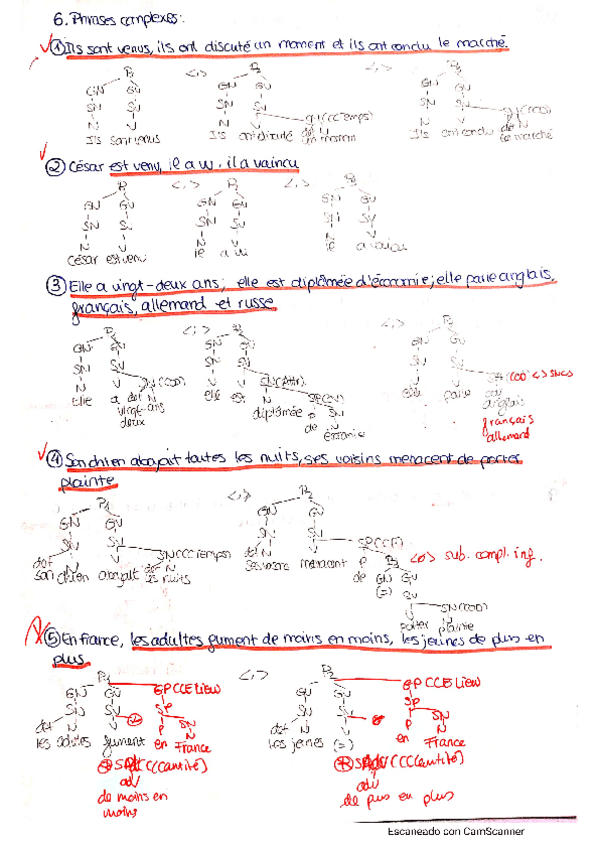 6. Phrases complexes:
① Ils sont venus, ils ont discuté un moment et ils ont conclu le marché.
P₁ <,> P₂ <,> P₃
GN GV GN GV GN GV
SN SV SN SV SN SV
N V N V SN(CCTemps) N V SN(COD)
Ils sont venus Ils ont discuté det N un moment Ils ont conclu det N le marché
② César est venu, il a vu, il a vaincu
P₁ <,> P₂ <,> P₃
GN GV GN GV GN GV
SN SV SN SV SN SV
N V N V N V
César est venu il a vu il a vaincu
③ Elle a vingt-deux ans; elle est diplômée d'économie; elle parle anglais,
français, allemand et russe
P₁ <;> P₂ <;> P₃
GN GV GN GV GN GV
SN SV SN SV SN SV
N V SN(COD) N V SN(Attr) N V (COD <> SNCS
elle a det N elle est diplômée SP elle parle anglais
vingt-ans P SN français
deux de N allemand
économie
④ Son chien aboyait toutes les nuits, ses voisins menacent de porter
plainte
P₁ <,> P₂
GN GV GN GV
SN SV SN SV SPCC
det N V SN(CCTemps) det N V P P₃ <ø> sub. compl. inf.
son chien aboyait det N ses voisins menacent de GN GV
les nuits (=) SV
V SN(COD)
porter plainte
⑤ En France, les adultes fument de moins en moins, les jeunes de plus en
plus.
P₁ SPCCE Lieu <,> P₂ SPCCE Lieu
GN GV SP GN GV SP
SN SV P SN SN SV P SN
det N V N det N V N
les adultes fument en France les jeunes (=) en France
SAdv CC(Cantité) SAdv (CC(Cantité)
adv adv
de moins en de plus en plus
moins
Escaneado con CamScanner